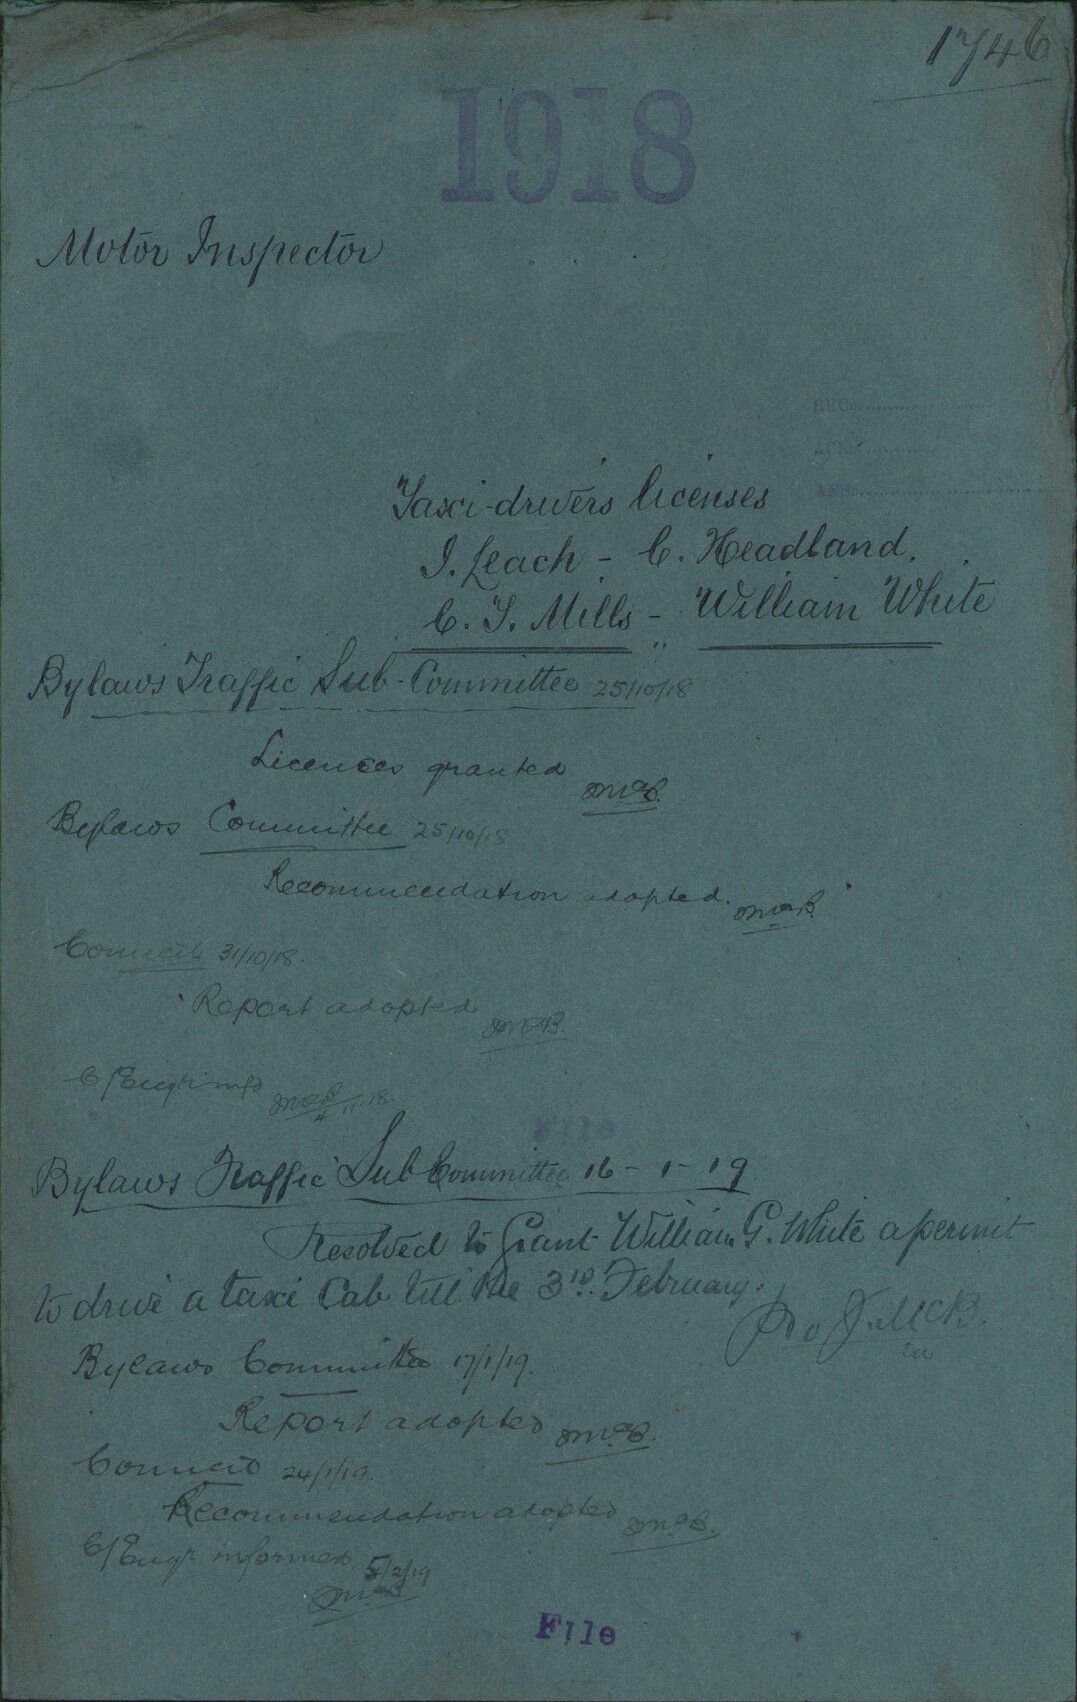 1746
1918
Motor Inspector
RECD..............
ACKD..............
ANSD..............
Taxi-drivers licenses
I. Leach - C. Headland.
C. T. Mills - William White
Bylaws Traffic Sub-Committee 25/10/18
Licences granted
JMcB.
Bylaws Committee 25/10/18
Recommendation adopted. JMcB.
Council 31/10/18.
Report adopted
JMcB.
C/Engr infd JMcB 11.18.
File
Bylaws Traffic Sub Committee 16-1-19
Resolved to Grant William G. White a permit
to drive a taxi Cab till the 3rd. February.
Pro J. McB.
Bylaws Committee 17/1/19.
Report adopted JMcB.
Council 24/1/19.
Recommendation adopted JMcB.
C/Engr informed 5/2/19
JMcB
File